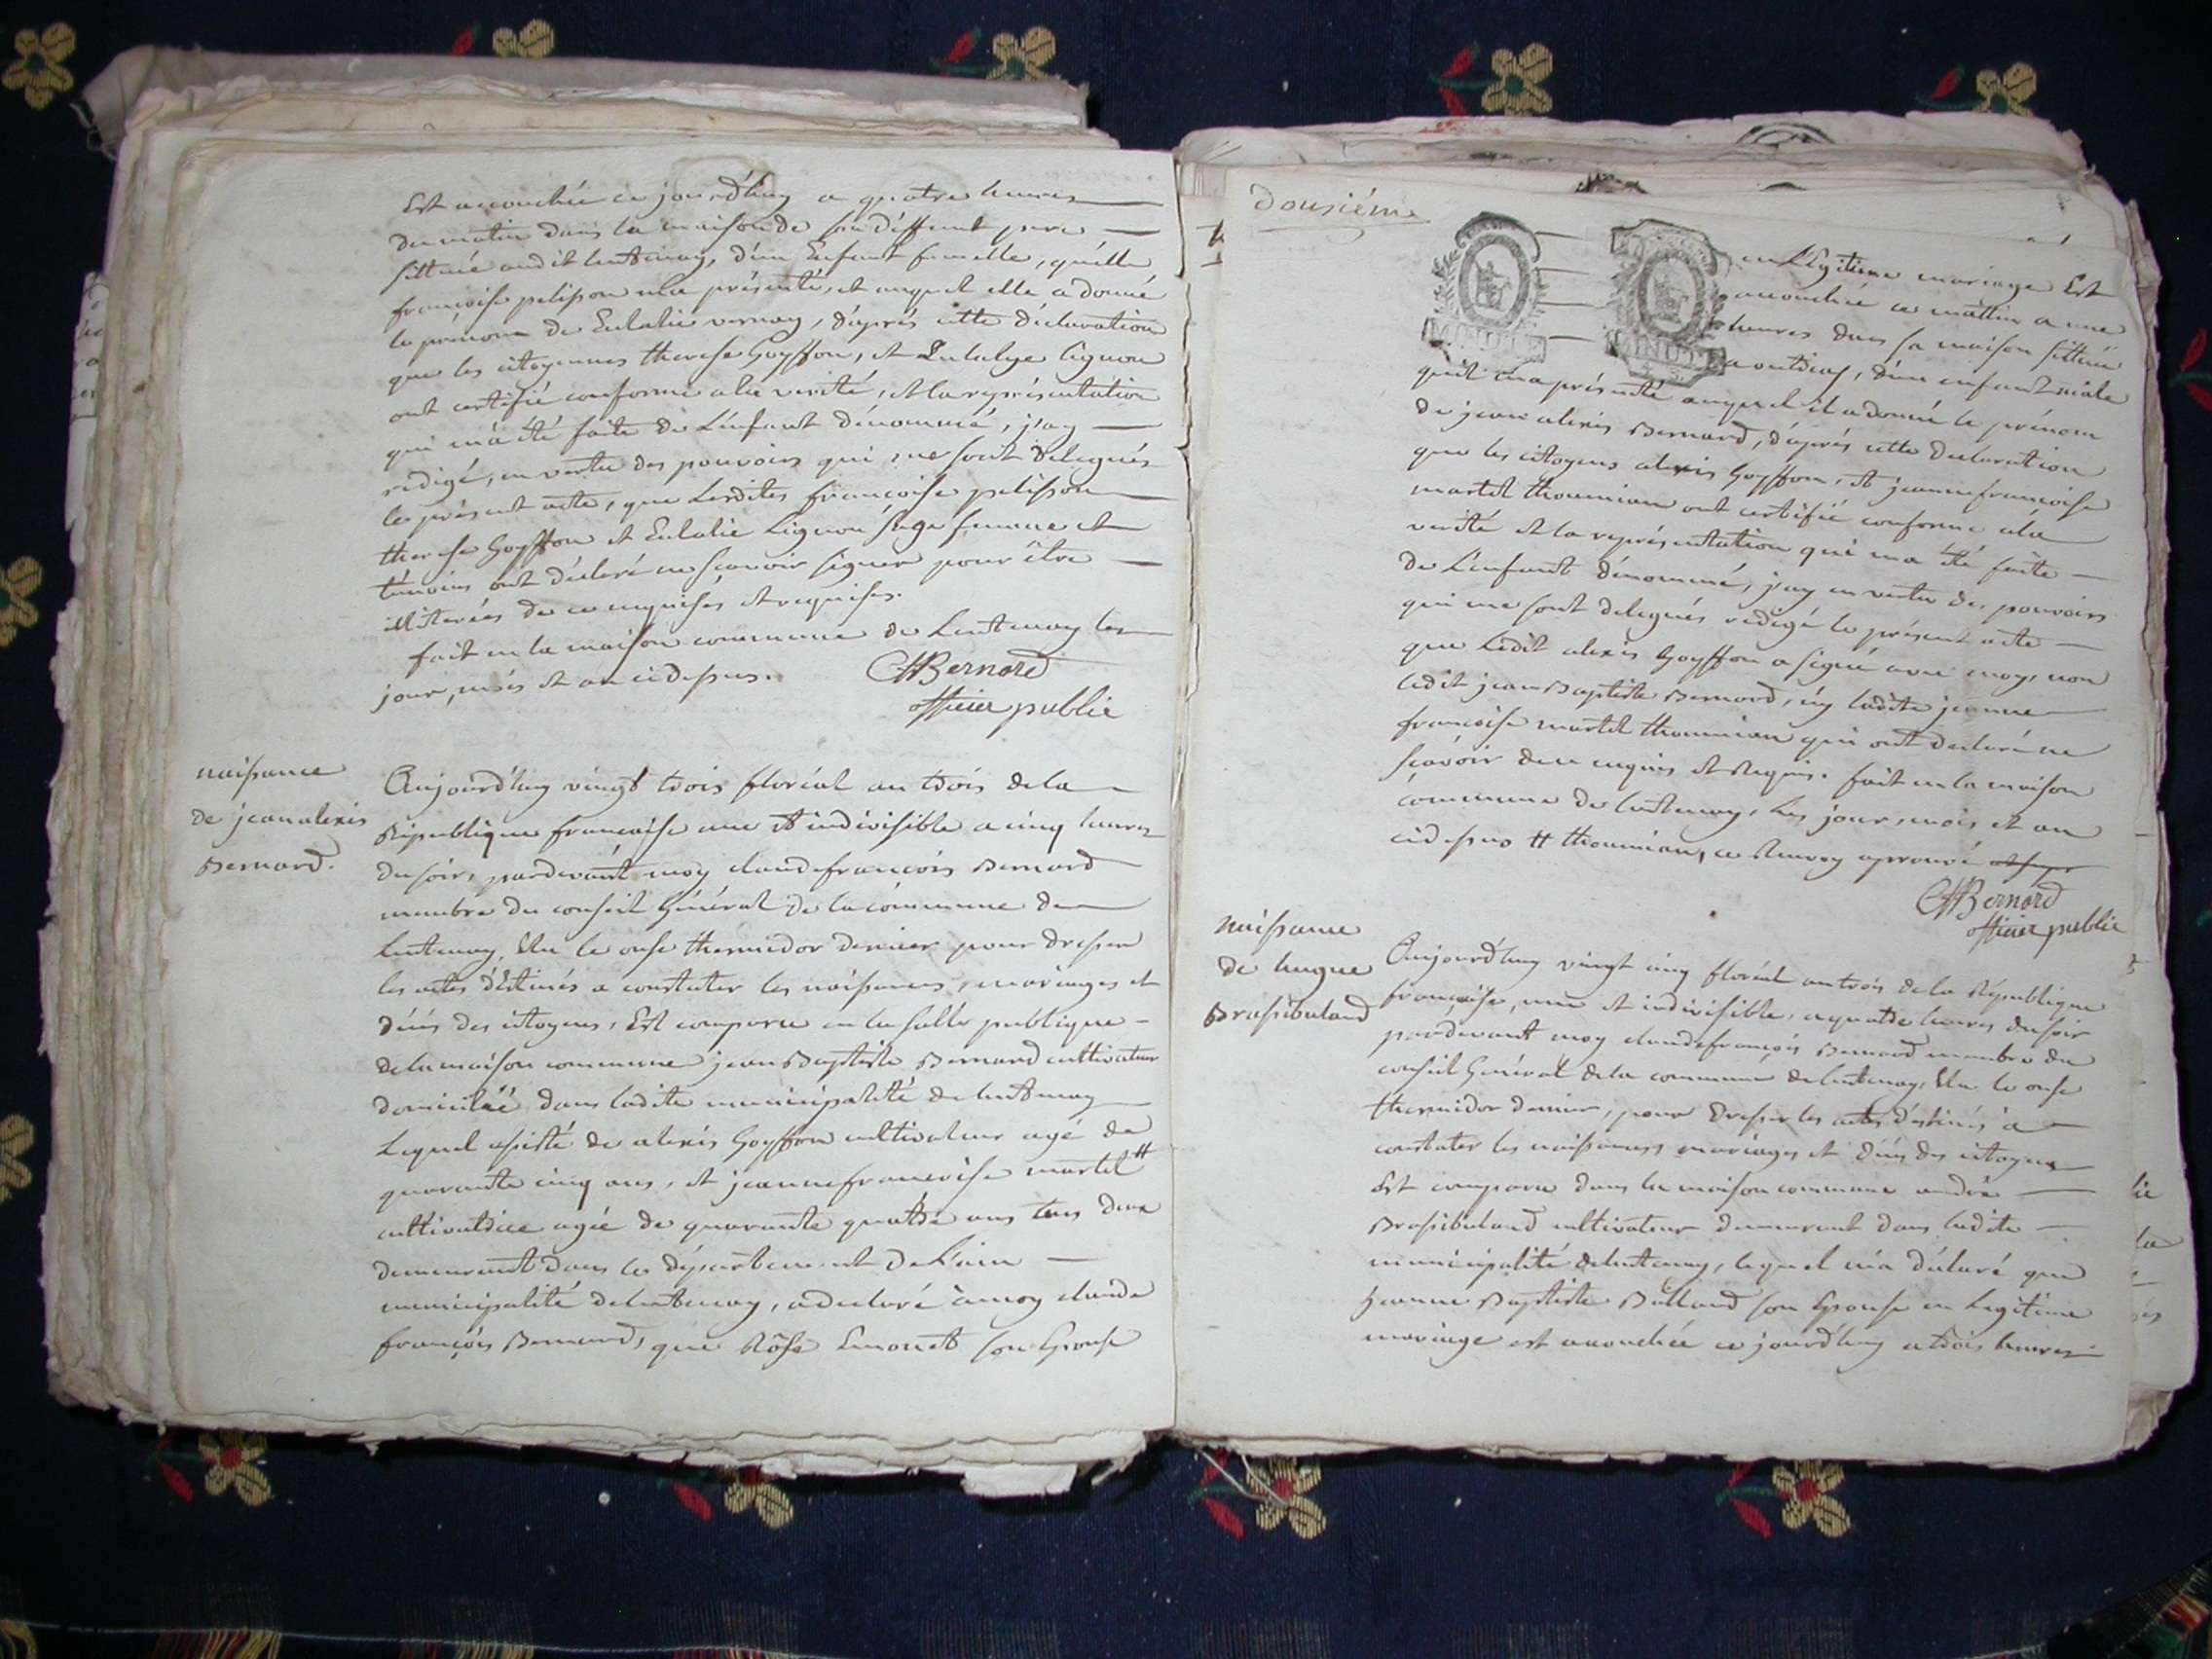 Est acouchée ce jourd'huy a quatre heures
du matin dans la maison de son déffunt pere
sittuée audit lentenay, d'un Enfant femelle, qu'elle
françoise pelisson m'a présenté, et auquel elle a donné
le prénom de Eulalie vernay, d'aprés cette déclaration
que les citoyennes therese Goyffon, et Eulalye Lignon
ont certifié conforme a la verité, et la représentation
qui m'a été faite de L'enfant dénommé, j'ay
redigé, en vertu des pouvoirs qui me sont délegués
le présent acte, que Lesdites françoise pelisson
therese Goyffon et Eulalie Lignon sage femme et
témoins ont déclaré ne sçavoir signer pour être
illiterées de ce enquises et requises.
fait en la maison commune de Lentenay les
jour, mois et an cidessus.
Bernard
officier public
naissance
de jean alexis
Bernard.
Aujourd'huy vingt trois floréal an trois de la
République française une et indivisible a cinq heures
du soir, pardevant moy claude françois Bernard
membre du conseil Général de la commune de
Lentenay, Elu le onse thermidor dernier pour dresser
les actes déstinés a constater les naissances, mariages et
décés des citoyens, Est comparu en la salle publique
de la maison commune jean Baptiste Bernard cultivateur
domicilié dans ladite municipalité de lentenay
Lequel assisté de alexis Goyffon cultivateur agé de
quarante cinq ans, et jeanne françoise martel #
cultivatrice agée de quarante quatre ans tous deux
demeurant dans le département de L'ain
municipalité de lentenay, a declaré à moy claude
françois Bernard, que Rôse Emonet son Epouse
dousiéme
MINUTE
MINUTE
en LEgitime mariage Est
acouchée ce mattin a une
heures dans sa maison sittuée
d'un enfant mâle
qu'il m'a présenté auquel il a donné le prénom
de jean alexis Bernard, d'aprés cette declaration
que les citoyens alexis Goyffon, et jeanne françoise
martel thoumian ont certifié conforme a la
verité et la représentation qui m'a été faite
de L'enfant dénommé, j'ay en vertu des pouvoirs
qui me sont delegués redigé le présent acte
que Ledit alexis Goyffon a signé avec moy, non
ledit jean Baptiste Bernard, ny ladite jeanne
françoise martel thoumian qui ont declaré ne
sçavoir de ce enquis et Requis. fait en la maison
commune de lentenay, Les jour, mois et an
cidessus # thoumian, ce Renvoy aprouvé
Bernard
officier public
naissance
de hugue
Brassibuland
Aujourd'huy vingt cinq floréal an trois de la République
françoise, une et indivisible, a quatre heures du soir
pardevant moy claude françois Bernard membre du
conseil Général de la commune de lentenay, Elu le onse
thermidor dernier, pour dresser les actes déstinés à
constater les naissances mariages et décés des citoyens
Est comparu dans la maison commune andré
Brassibuland cultivateur demeurant dans ladite
municipalité de lentenay, lequel m'a déclaré que
jeanne Baptiste Balland son Epouse en Legitime
mariage est acouchée ce jourd'huy a trois heures